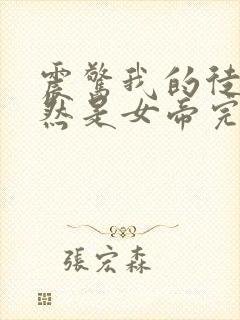 震驚我的徒
然是女帝完
張宏森